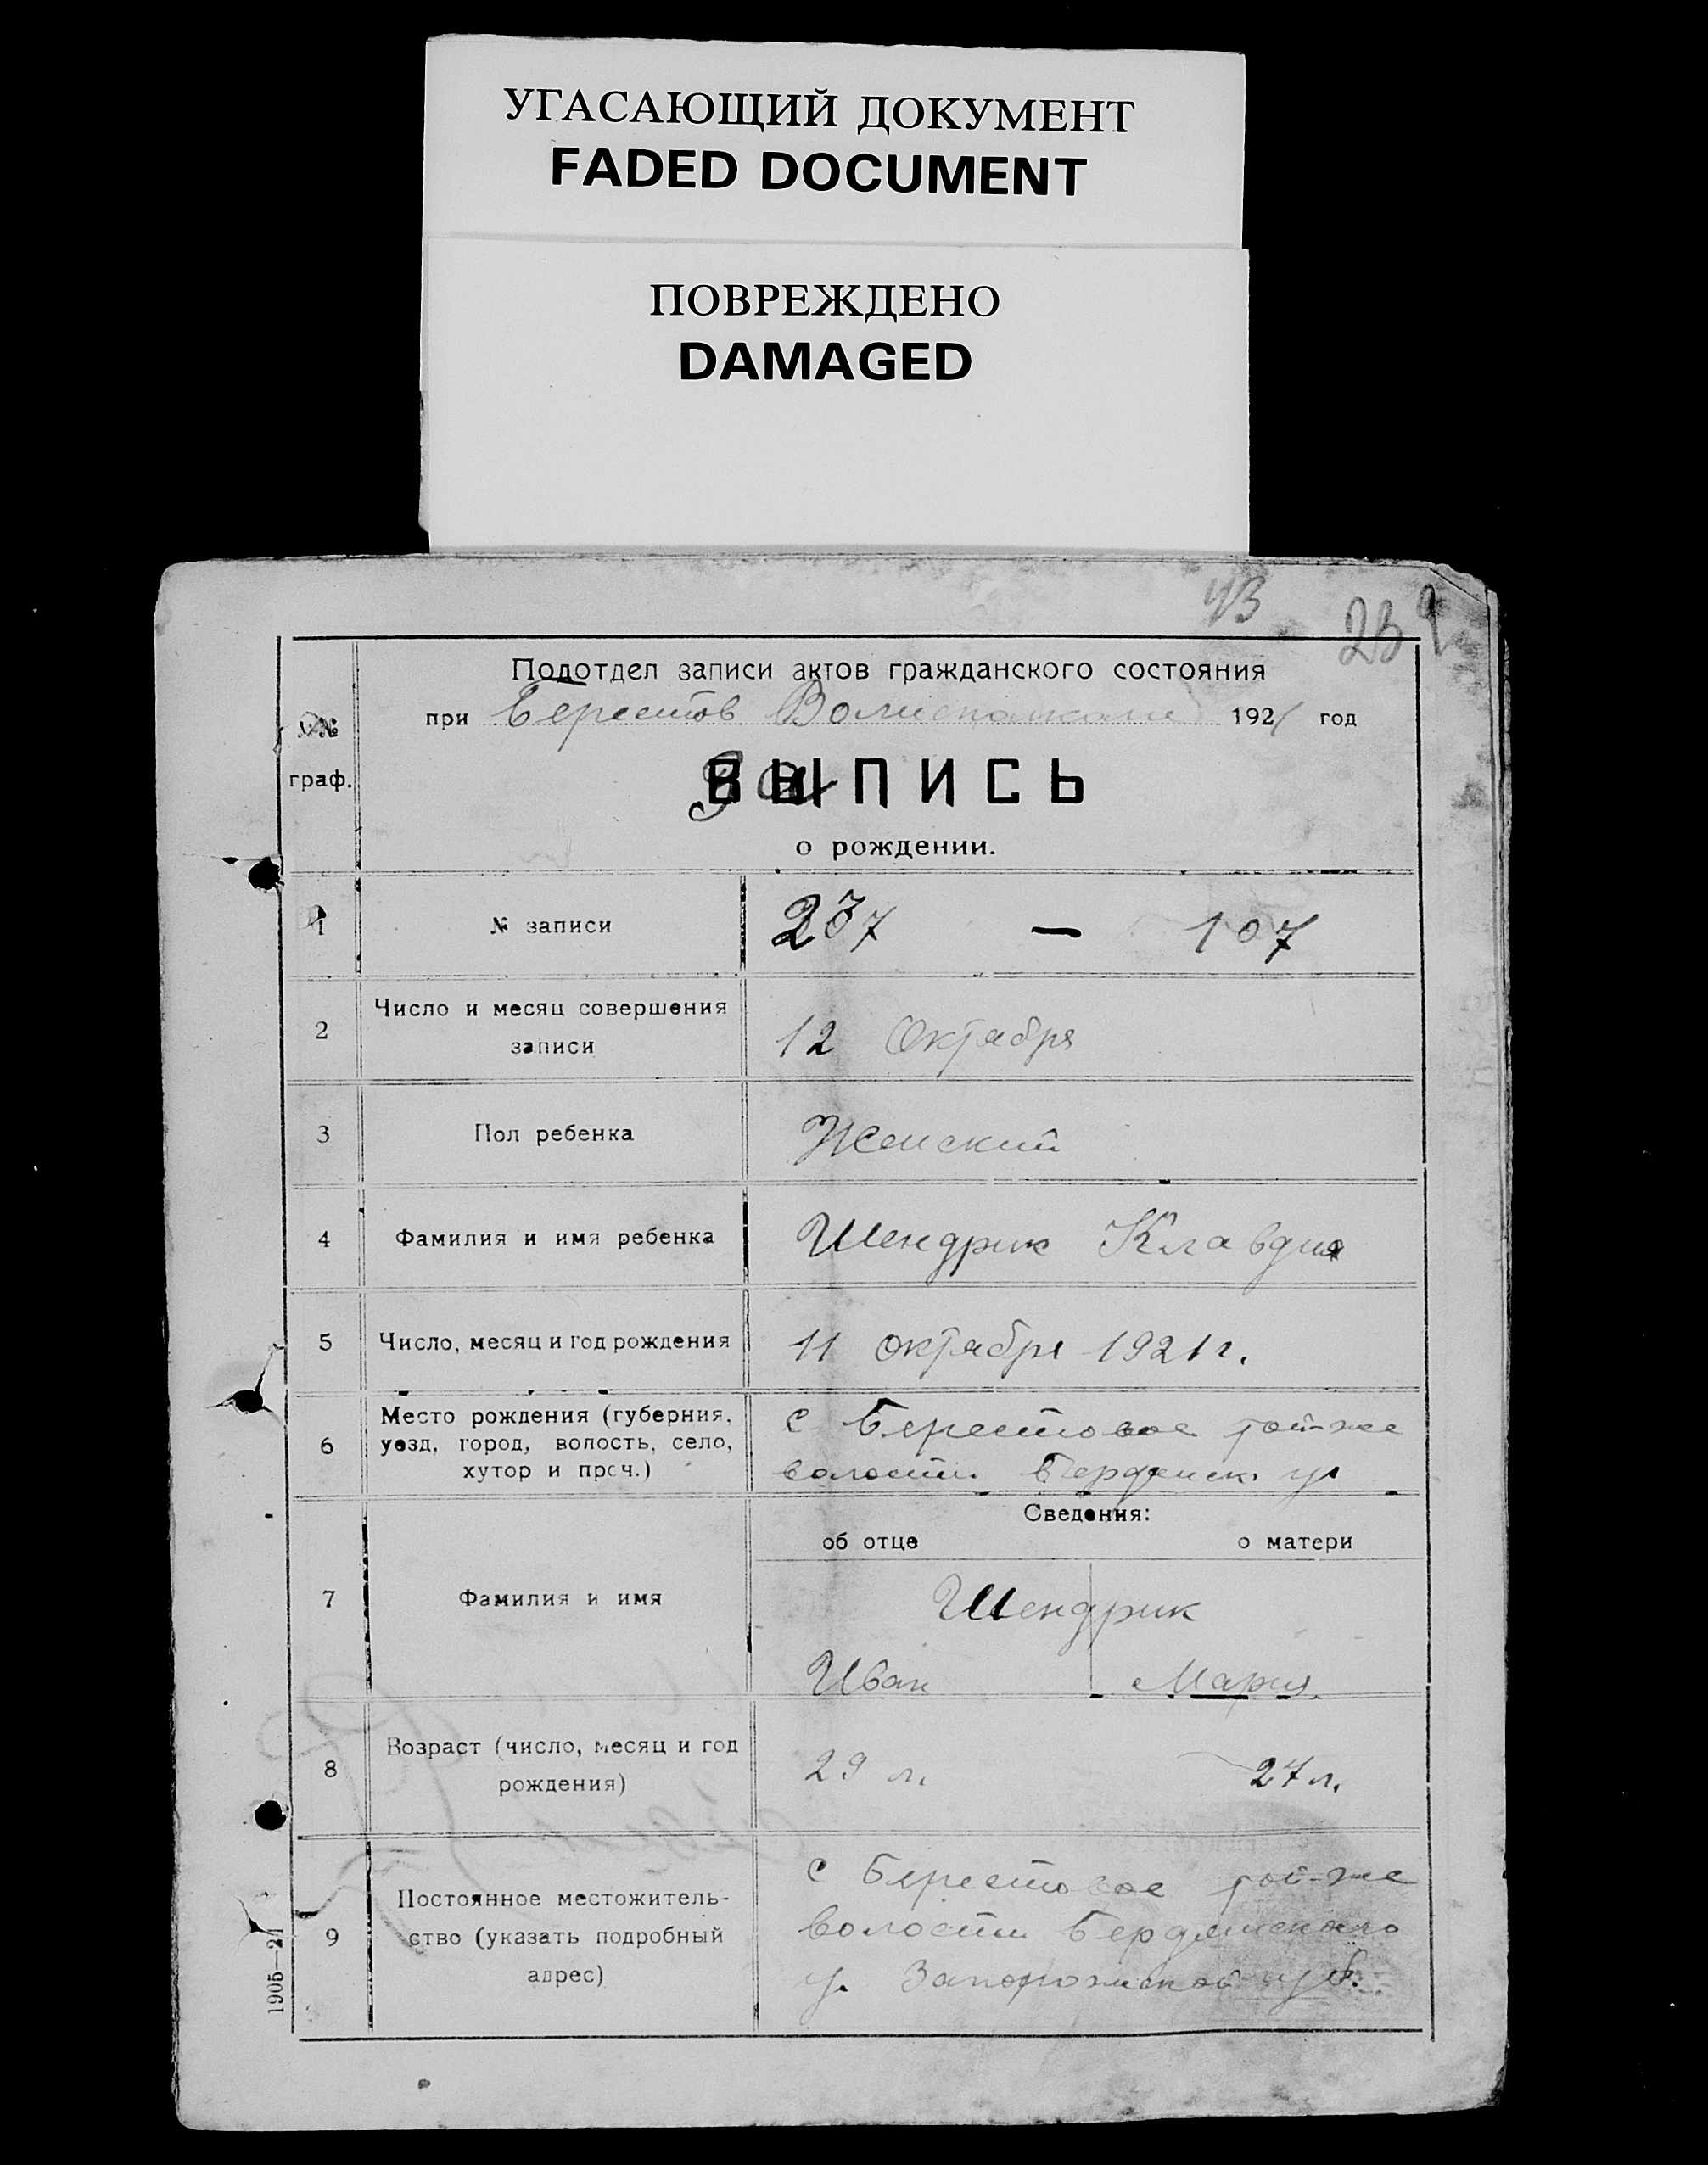 УГАСАЮЩИЙ ДОКУМЕНТ
FADED DOCUMENT
ПОВРЕЖДЕНО
DAMAGED
43
Подотдел записи актов гражданского состояния
при Берестов Волисполкоме 1921 год
№№
граф.
ВЫПИСЬ
о рождении.
1 № записи 237 — 107
2 Число и месяц совершения
записи
12 Октября
3 Пол ребенка Женский
4 Фамилия и имя ребенка Шендрик Клавдия
5 Число, месяц и год рождения 11 октября 1921 г.
6 Место рождения (губерния,
уезд, город, волость, село,
хутор и проч.)
с Берестовое той-же
волости Бердянск. у.
Сведения:
об отце о матери
7 Фамилия и имя
Шендрик
Иван Мария.
8 Возраст (число, месяц и год
рождения)
29 л. 27 л.
9 Постоянное местожитель-
ство (указать подробный
адрес)
с Берестовое той-же
волости Бердянского
у. Запорожской губ.
1905—21